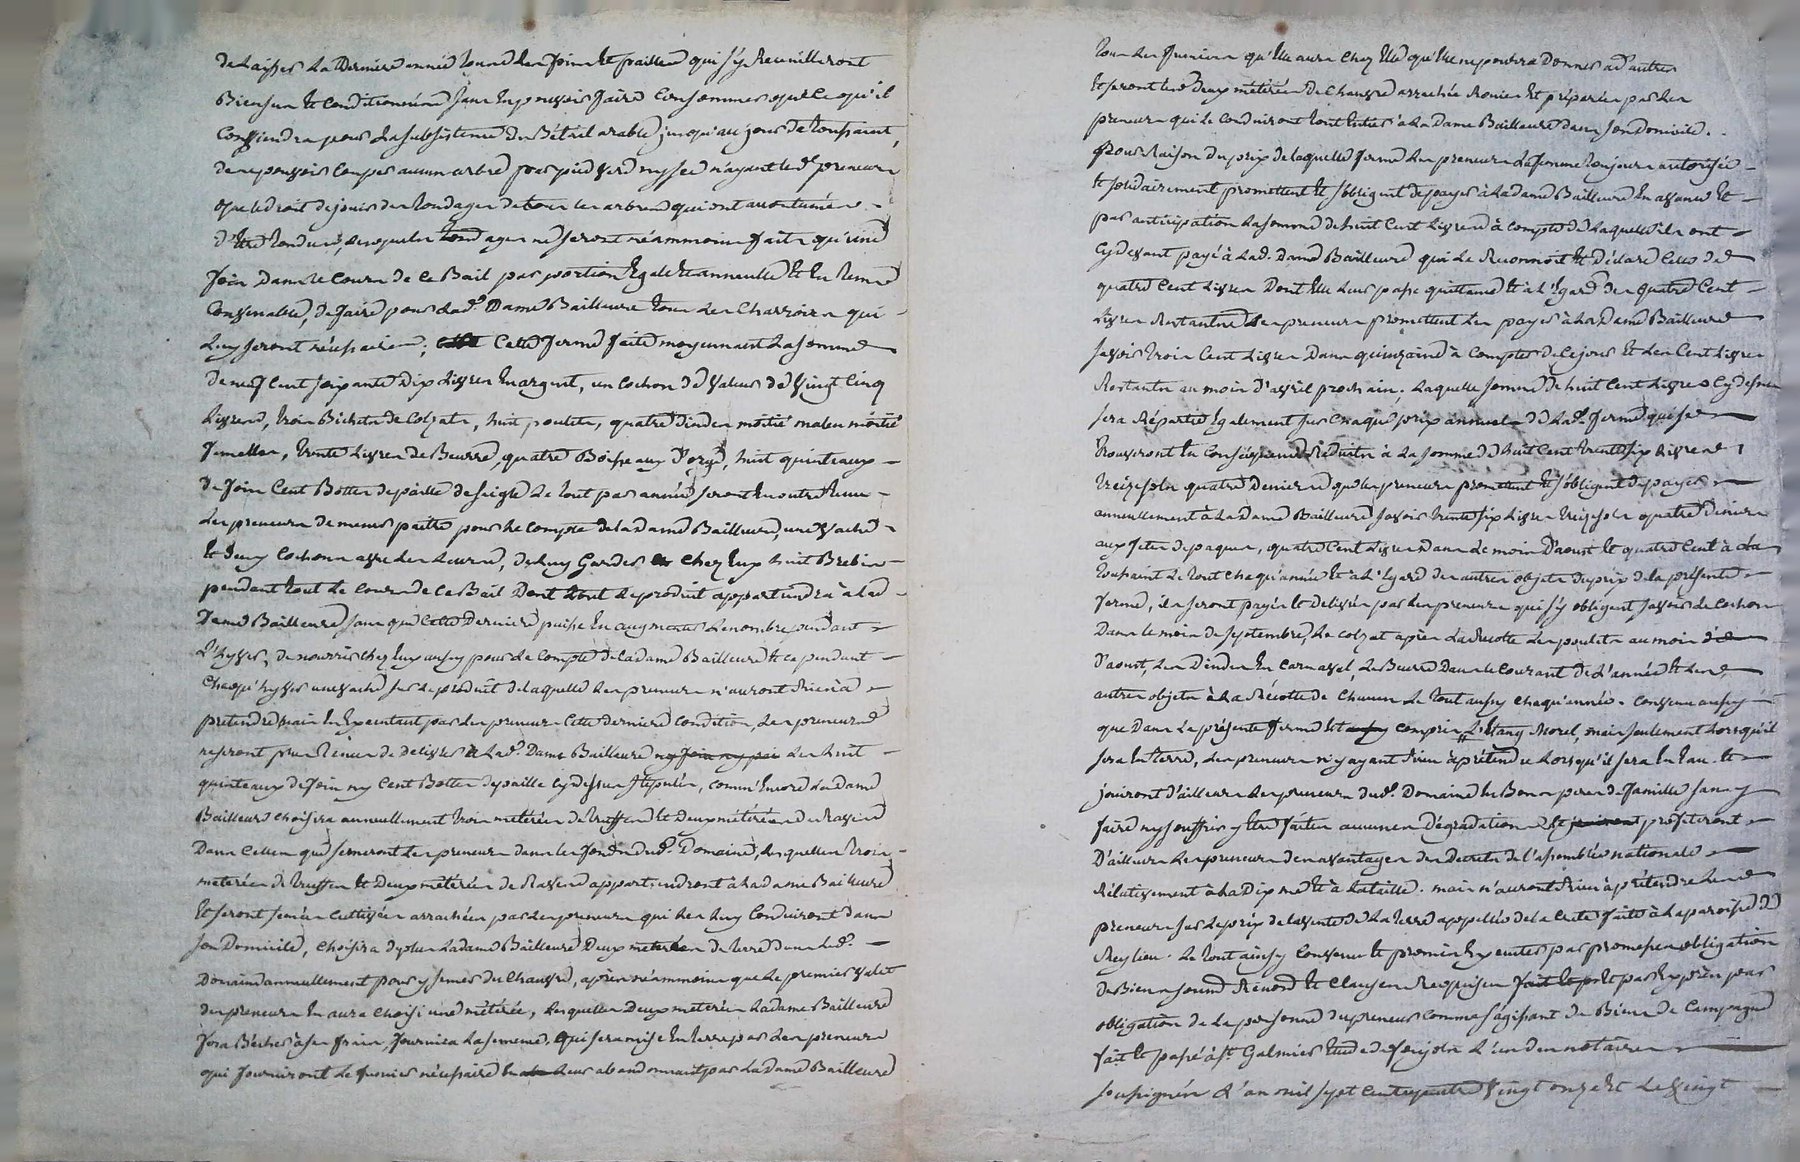 de Laisser La Derniere année tous Les foins et pailles qui s'y Recueilleront
Bien sur et Conditionnées sans En pouvoir faire Consommer que Ce qu'il
Conviendra pour La subsistence du Bétail arable jusqu'au jour de toussaint,
de ne pouvoir Couper aucun arbre par pied verd ny sec n'ayant Led. preneur
que le droit de jouir des tondages de tous les arbres qui ont accoutumés
d'Etre tondues, Lesquels tondages ne seront néammoins faits qu'une
fois Dans le Cours de Ce Bail par portion Egale et annuelle Et En tems
Convenable, de faire pour Lad. Dame Bailleure tous Les Charrois qui
Luy seront nécessaires; Cette ferme faite moyennant La somme
de neuf Cent soixante Dix Livres En argent, un Cochon de valeur de vingt Cinq
Livres, trois Bichets de Colzat, huit poulets, quatre dindes moitié males moitié
femelles, trente Livres de Beurre, quatre Boisseaux d'orge, huit quinteaux
de foin Cent Bottes de paille de seigle Le tout par année seront En outre tenus
Les preneurs de mener paitre pour Le Compte de la dame Bailleure, une vache
Et deux Cochons avec Les Leurs, de Luy Garder Chez Eux huit Brebis
pendant tout Le Cours de Ce Bail Dont tout Le produit appartiendra à Lad.
Dame Bailleure sans que Cette Derniere puisse En augmenter Le nombre pendant
L'hyver, de nourrir Chez Eux aussy pour Le Compte de La dame Bailleure Et ce pendant
Chaqu'hyver une vache sur Le produit de Laquelle Les preneurs n'auront Rien à
pretendre mais En Executant par Les preneurs Cette derniere Condition, Les preneurs
ne seront pas tenus de delivrer à Lad. Dame Bailleure ny foin ny pai Les huit
quinteaux de foin ny Cent Bottes de paille Cy dessus stipulés, Comm'Encore La dame
Bailleure Choisira annuellement trois meterées de truffes et Deux meterées de Raves
Dans Celles que semeront Les preneurs dans les fonds dud. Domaine, Lesquelles trois
meterées de truffes et Deux méterées de Raves appartiendront à La dame Bailleure
Et seront semées Cultivées arrachées par Les preneurs qui Les Luy Conduiront dans
son Domicile, Choisira de plus La dame Bailleure Deux meterées de terre dans Led.
Domaine annuellement pour y semer du Chanvre, après néammoins que Le premier valet
des preneurs En aura Choisi une méterée, Lesquelles Deux meterées La dame Bailleure
fera Bécher à ses frais, fournira La semence, qui sera mise En terre par Les preneurs
qui fourniront Le fumier nécessaire Leur abandonnant par La dame Bailleure
tous Les fumiers qu'Elle aura Chez Elle qu'Elle ne pourra Donner à d'autres
Et seront Les Deux méterées de Chanvre arrachée Rouies Et préparées par Les
preneurs qui Le Conduiront tout Entier à La Dame Bailleure dans son Domicile.
Pour Raison du prix de laquelle ferme Les preneurs La femme toujours autorisée
Et solidairement promettent Et s'obligent de payer à La dame Bailleure En avance Et
par anticipation La somme de huit Cent Livres à Compte de Laquelle ils ont
Cy devant payé à Lad. Dame Bailleure qui Le Reconnoit Et Déclare Celle de
quatre Cent Livres Dont Elle Leur passe quittance Et à L'Egard des quatre Cent
Livres Restantes Les preneurs promettent Les payer à La Dame Bailleure
savoir trois Cent Livres Dans quinzaine à Compter de Ce jour Et Les Cent Livres
Restantes au mois d'avril prochain; Laquelle somme de huit Cent Livres Cy dessus
sera Répartie Egalement sur Chaque prix annuel de Lad. ferme qui se
trouveront En Conséquence Réduits à La somme de huit Cent trente six Livres
treize sols quatre Deniers que Les preneurs promettent Et s'obligent de payer
annuellement à La Dame Bailleure savoir trente six Livres treize sols quatre Deniers
aux fetes de paques, quatre Cent Livres Dans Le mois D'aoust Et quatre Cent à La
toussaint Le tout Chaqu'année Et à L'Egard des autres objets du prix de la présente
ferme, ils seront payés Et Delivrés par Les preneurs qui s'y obligent savoir Le Cochon
Dans le mois de septembre, Le Colzat après La Recolte Les poulets au mois
D'aoust, Les Dindes En Carnaval, Le Beurre Dans Le Courant de L'année Et Les
autres objets à La Récolte de Chacun Le tout aussy Chaqu'année. Convenu aussy
que Dans La présente ferme Est Compris L'Etang Morel, mais seulement Lorsqu'il
sera En terre, Les preneurs n'y ayant Rien à prétendre Lorsqu'il sera En Eau. Et
jouiront d'ailleurs Les preneurs dud. Domaine En Bons peres de famille sans y
faire ny souffrir y Etre faites aucunes Dégradations Et profiteront
D'ailleurs Les preneurs des avantages des Decrets de l'assemblée nationale
Rélativement à La Dixme Et à La taille. mais n'auront Rien à prétendre Les
preneurs sur Le prix de la vente de La terre appellée de la Crete faite à La paroisse de
Meylieu. Le tout ainsy Convenu Et promis Executer par promesses obligation
de Biens soumis Renonc. Et Clauses Requises fait Et p Et par Exprès pour
obligation de La personne du preneur Comme s'agissant de Biens de Campagne
fait Et passé à St. Galmier Etude de L'un des notaires
soussignés L'an mil sept Cent quatre vingt onze Et Le vingt